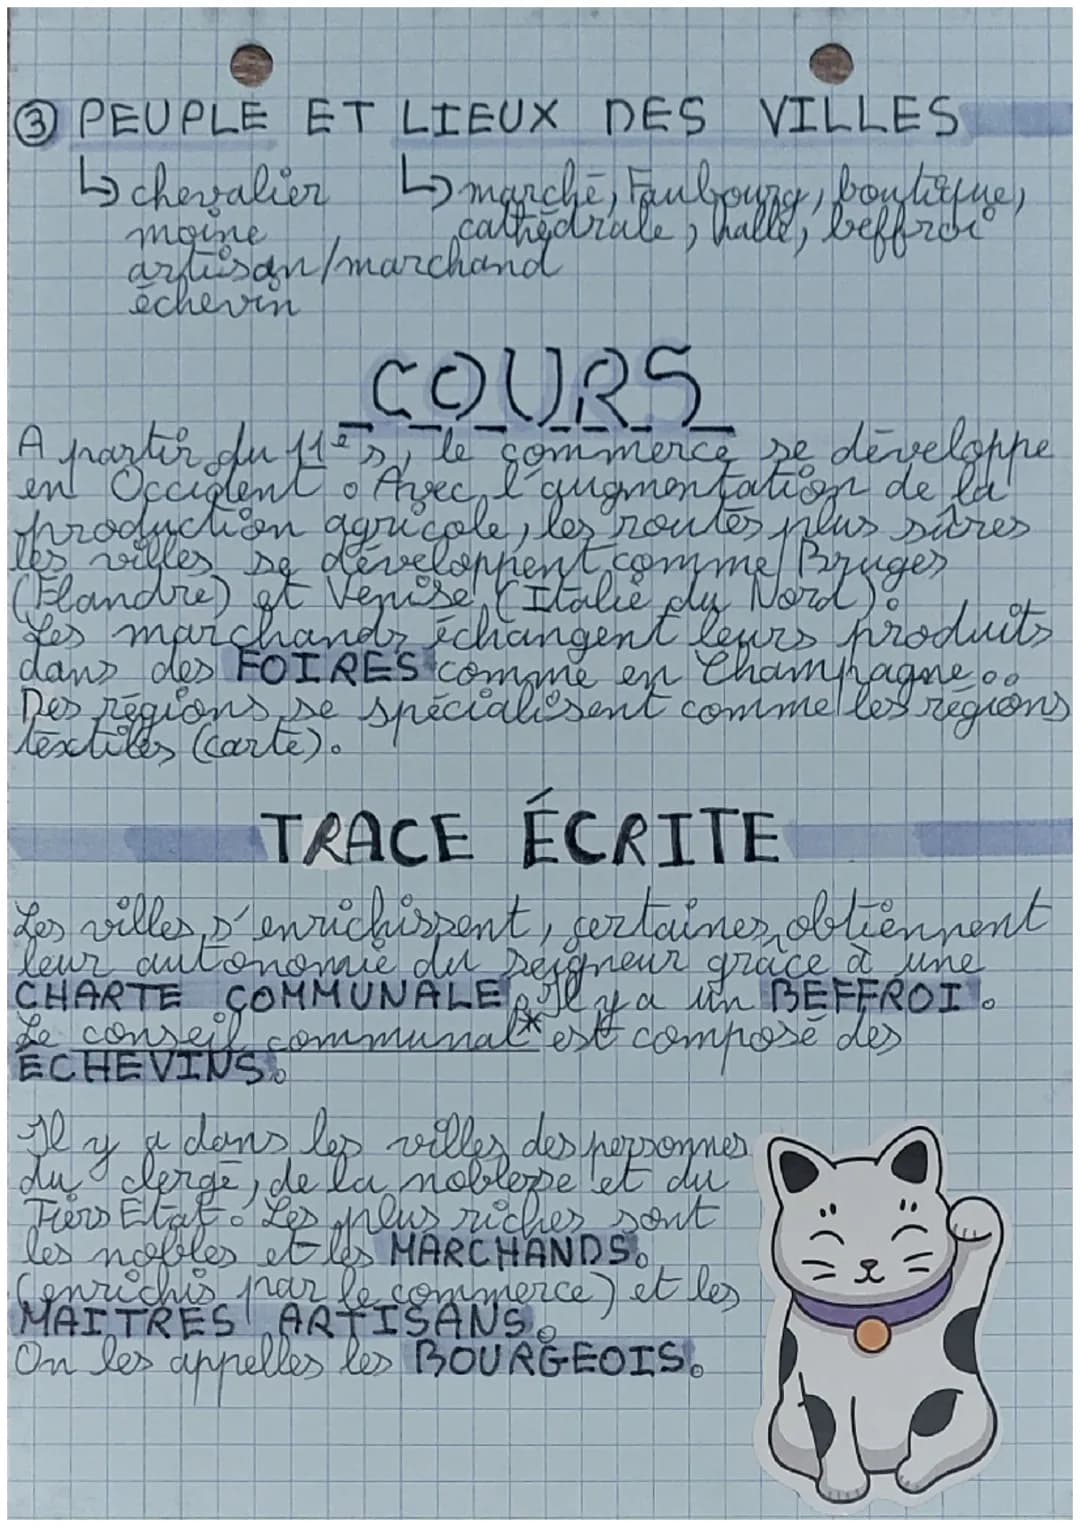 ③ PEUPLE ET LIEUX DES VILLES
↳ chevalier ↳ marché, Faubourg, boutique,
moine cathédrale, halle, beffroi
artisan/marchand
échevin
COURS
A partir du 11e s, le commerce se développe
en Occident. Avec l'augmentation de la
production agricole, les routes plus sûres
les villes se développent comme Bruges
(Flandre) et Venise (Italie du Nord).
Les marchands échangent leurs produits
dans des FOIRES comme en Champagne...
Des régions se spécialisent comme les régions
textiles (carte).
TRACE ÉCRITE
Les villes s'enrichissent, certaines obtiennent
leur autonomie du seigneur grâce à une
CHARTE COMMUNALE. Il y a un BEFFROI.
Le conseil communal* est composé des
ECHEVINS.
Il y a dans les villes des personnes
du clergé, de la noblesse et du
Tiers Etat. Les plus riches sont
les nobles et les MARCHANDS.
(enrichis par le commerce) et les
MAITRES ARTISANS.
On les appelles les BOURGEOIS.